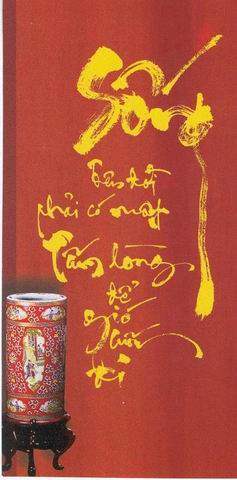 Sống
trên đời
phải có một
Tấm lòng
để
gió cuốn
đi